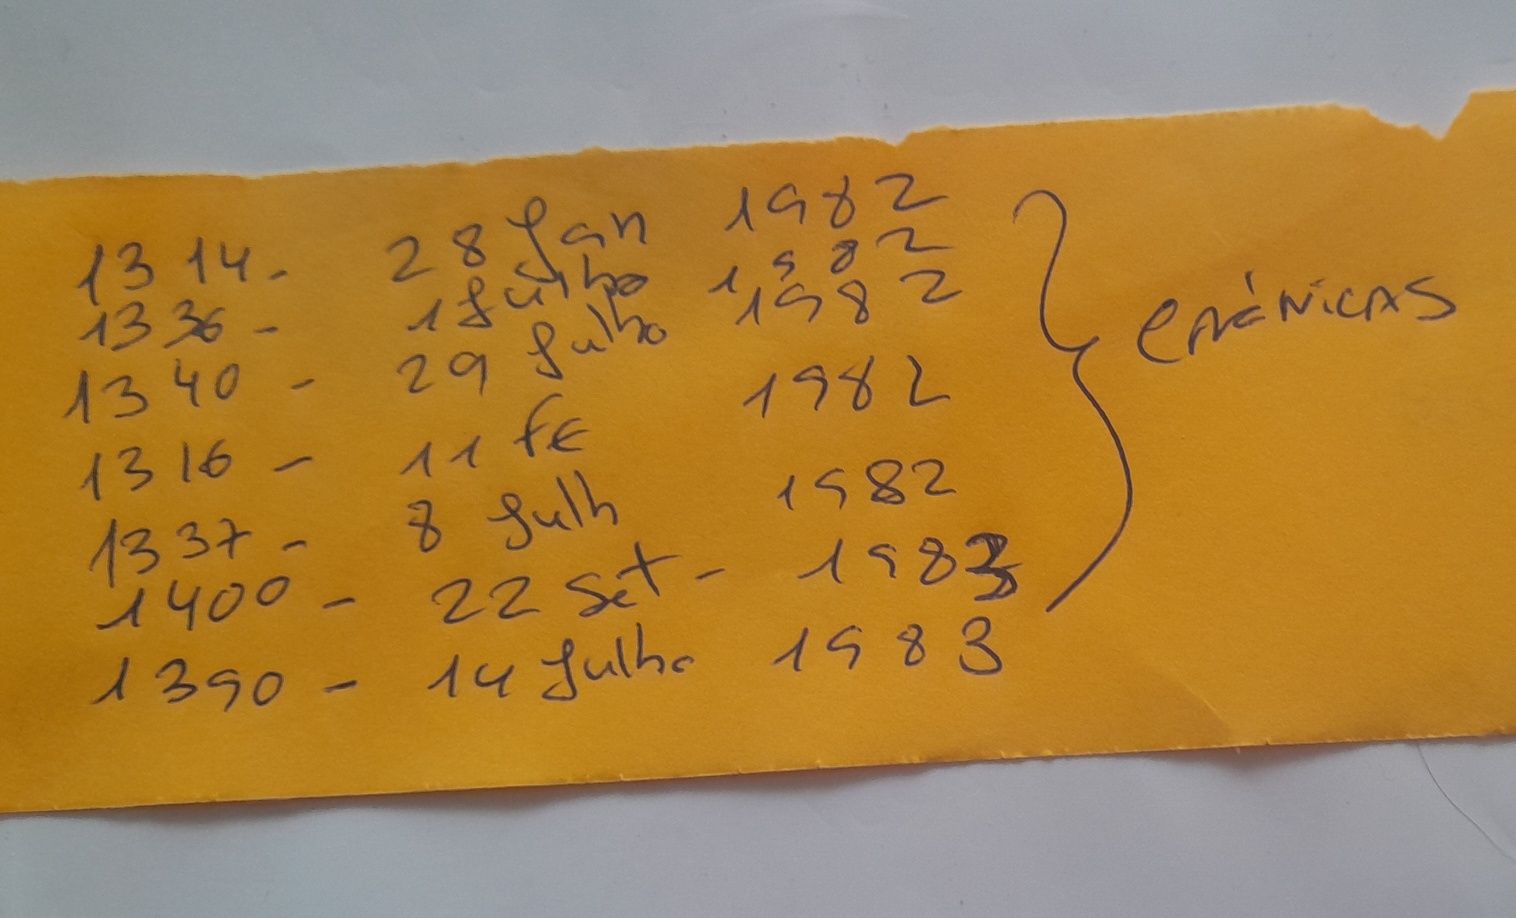 1314 - 28 Jan 1982
1336 - 1 Julho 1982
1340 - 29 Julho 1982
1316 - 11 Fe 1982
1337 - 8 Julh 1982
1400 - 22 Set - 1983
1390 - 14 Julho 1983
CRÓNICAS